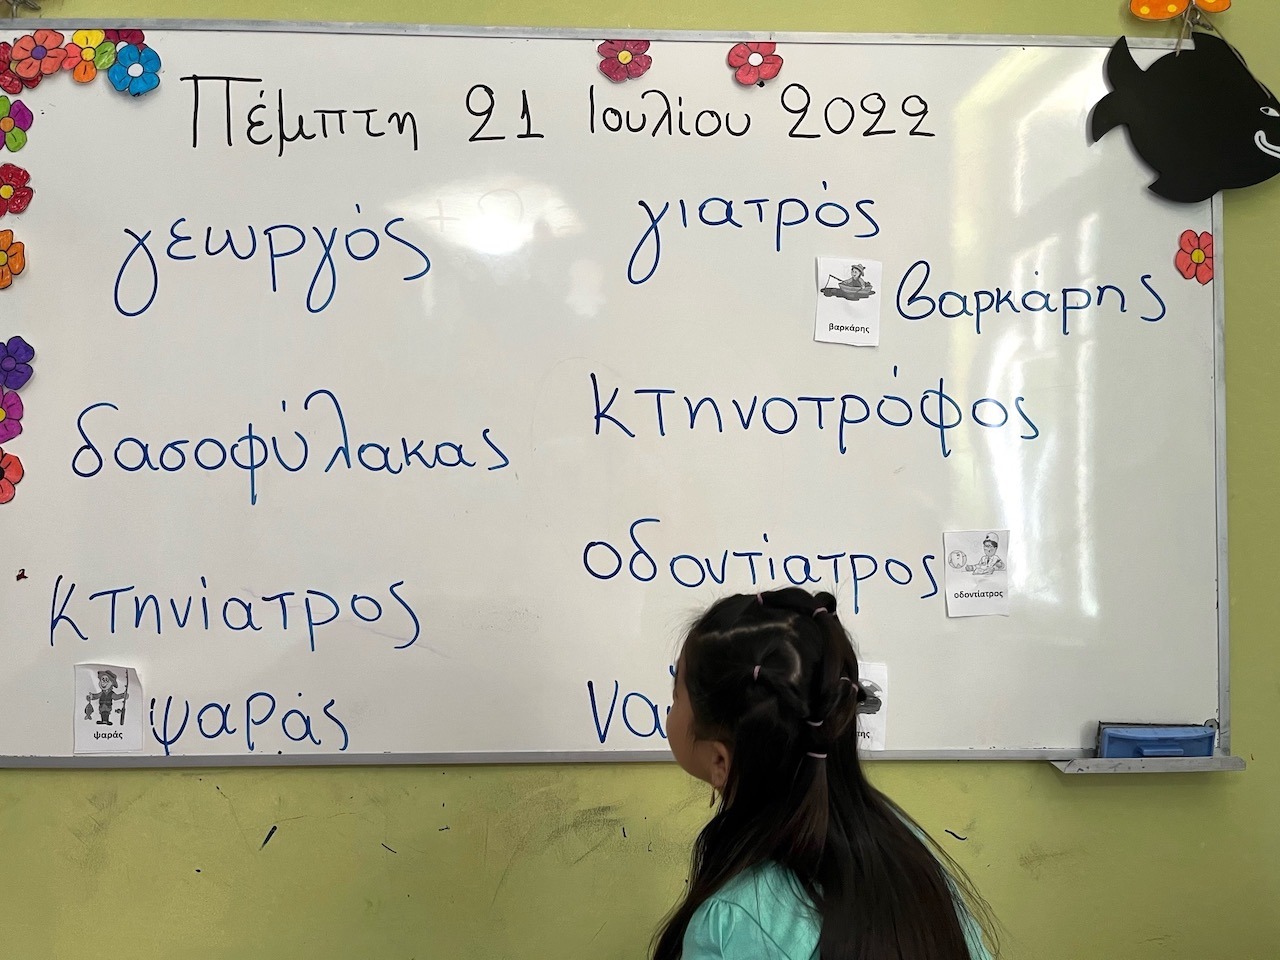 Πέμπτη 21 Ιουλίου 2022
γεωργός
γιατρός
βαρκάρης
βαρκάρης
δασοφύλακας
κτηνοτρόφος
οδοντίατρος
οδοντίατρος
κτηνίατρος
ψαράς
ψαράς